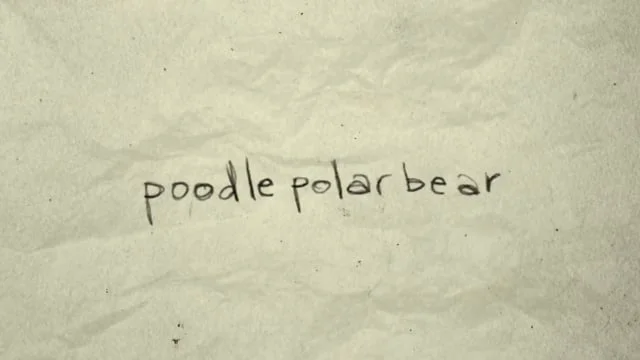 poodle polar bear